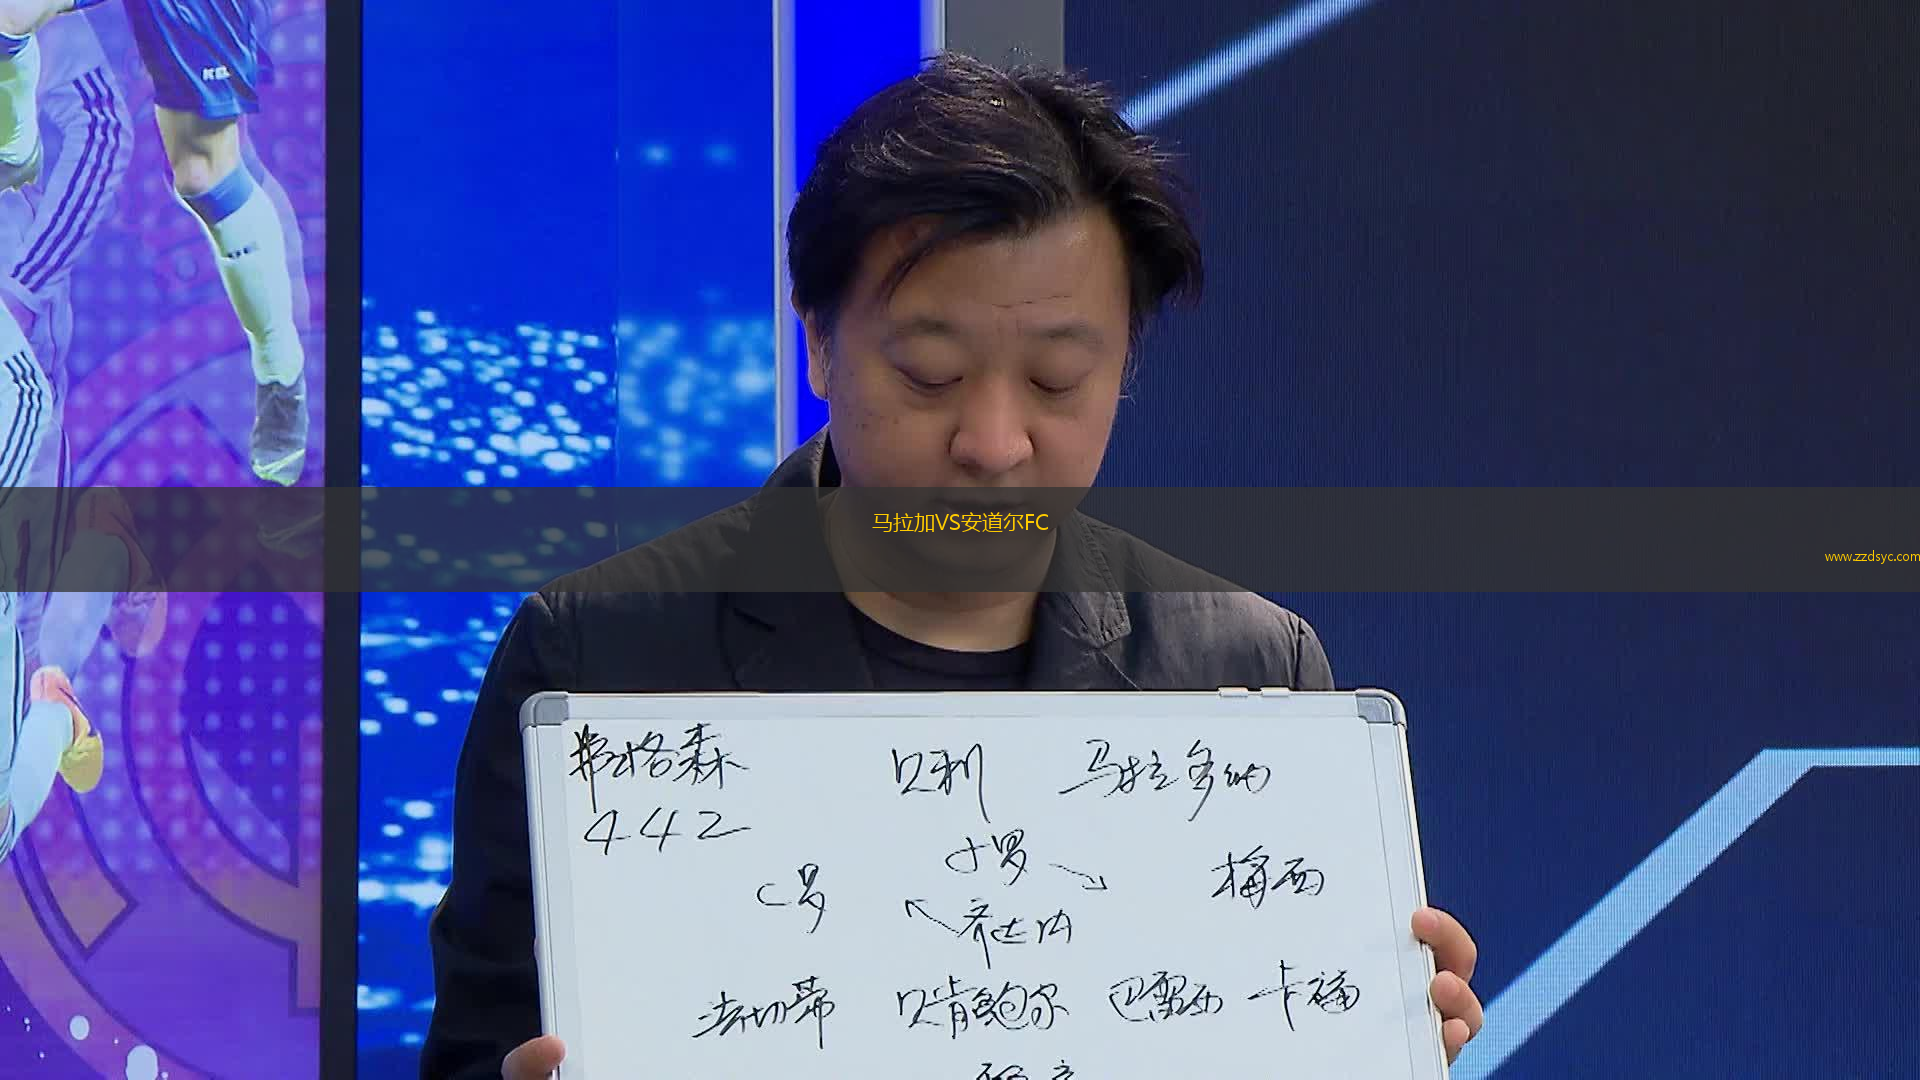 马拉加VS安道尔FC
www.zzdsyc.com
弗格森 贝利 马拉多纳
442
小罗
C罗 梅西
齐达内
法切蒂 贝肯鲍尔 巴雷西 卡福